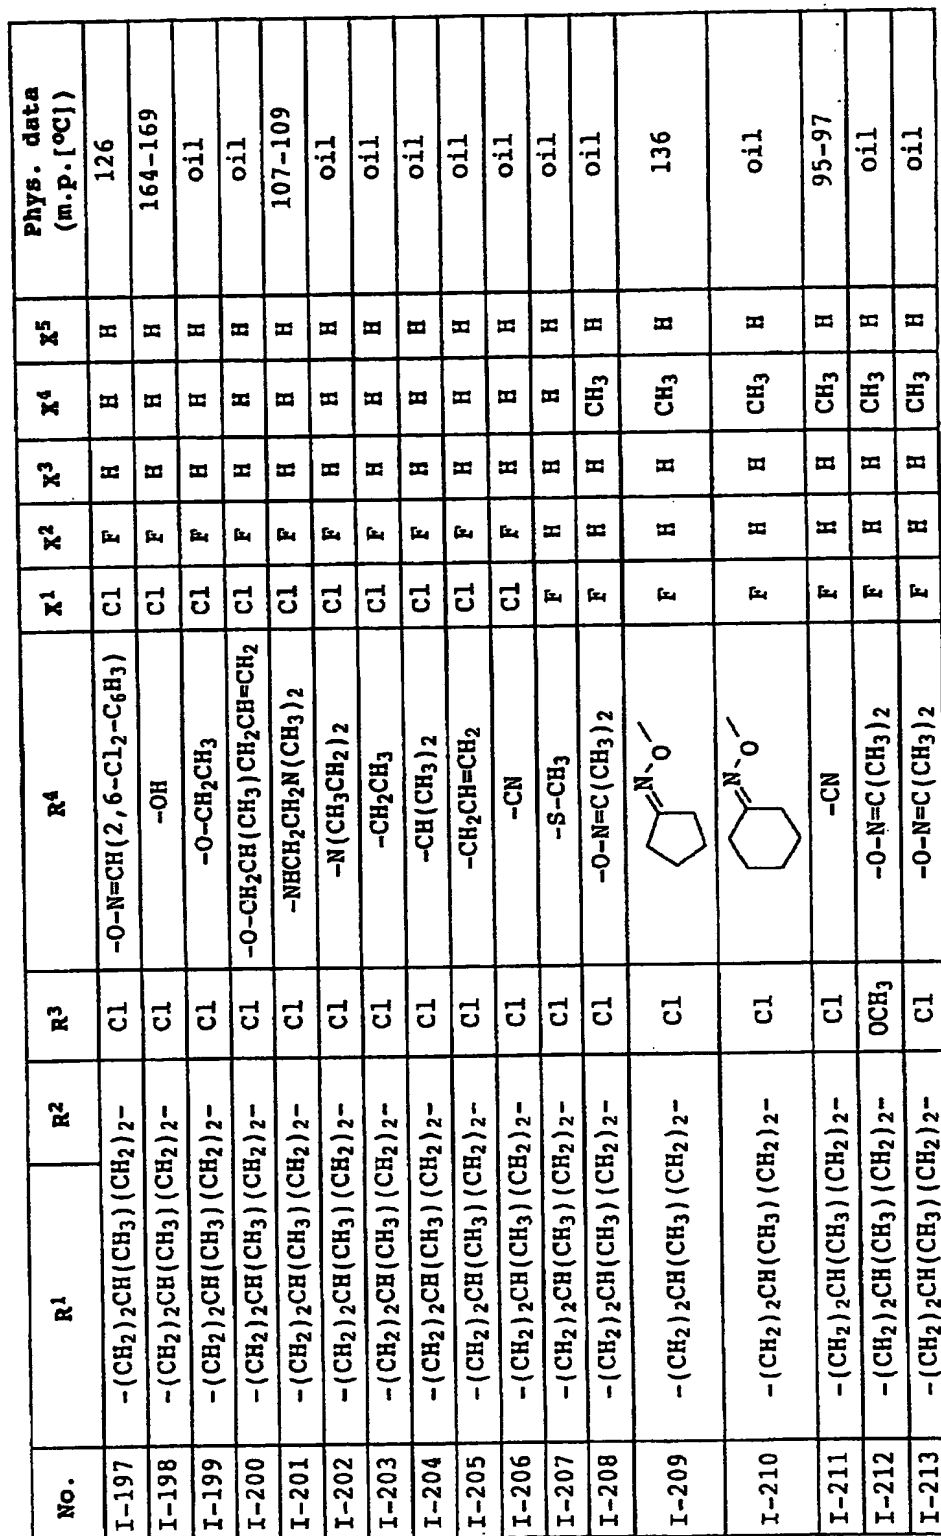 No. R¹ R² R³ R⁴ X¹ X² X³ X⁴ X⁵ Phys. data (m.p.[°C])
I-197 -(CH₂)₂CH(CH₃)(CH₂)₂- Cl -O-N=CH(2,6-Cl₂-C₆H₃) Cl F H H H 126
I-198 -(CH₂)₂CH(CH₃)(CH₂)₂- Cl -OH Cl F H H H 164-169
I-199 -(CH₂)₂CH(CH₃)(CH₂)₂- Cl -O-CH₂CH₃ Cl F H H H oil
I-200 -(CH₂)₂CH(CH₃)(CH₂)₂- Cl -O-CH₂CH(CH₃)CH₂CH=CH₂ Cl F H H H oil
I-201 -(CH₂)₂CH(CH₃)(CH₂)₂- Cl -NHCH₂CH₂N(CH₃)₂ Cl F H H H 107-109
I-202 -(CH₂)₂CH(CH₃)(CH₂)₂- Cl -N(CH₃CH₂)₂ Cl F H H H oil
I-203 -(CH₂)₂CH(CH₃)(CH₂)₂- Cl -CH₂CH₃ Cl F H H H oil
I-204 -(CH₂)₂CH(CH₃)(CH₂)₂- Cl -CH(CH₃)₂ Cl F H H H oil
I-205 -(CH₂)₂CH(CH₃)(CH₂)₂- Cl -CH₂CH=CH₂ Cl F H H H oil
I-206 -(CH₂)₂CH(CH₃)(CH₂)₂- Cl -CN Cl F H H H oil
I-207 -(CH₂)₂CH(CH₃)(CH₂)₂- Cl -S-CH₃ F H H H H oil
I-208 -(CH₂)₂CH(CH₃)(CH₂)₂- Cl -O-N=C(CH₃)₂ F H H CH₃ H oil
I-209 -(CH₂)₂CH(CH₃)(CH₂)₂- Cl N-O F H H CH₃ H 136
I-210 -(CH₂)₂CH(CH₃)(CH₂)₂- Cl N-O F H H CH₃ H oil
I-211 -(CH₂)₂CH(CH₃)(CH₂)₂- Cl -CN F H H CH₃ H 95-97
I-212 -(CH₂)₂CH(CH₃)(CH₂)₂- OCH₃ -O-N=C(CH₃)₂ F H H CH₃ H oil
I-213 -(CH₂)₂CH(CH₃)(CH₂)₂- Cl -O-N=C(CH₃)₂ F H H CH₃ H oil